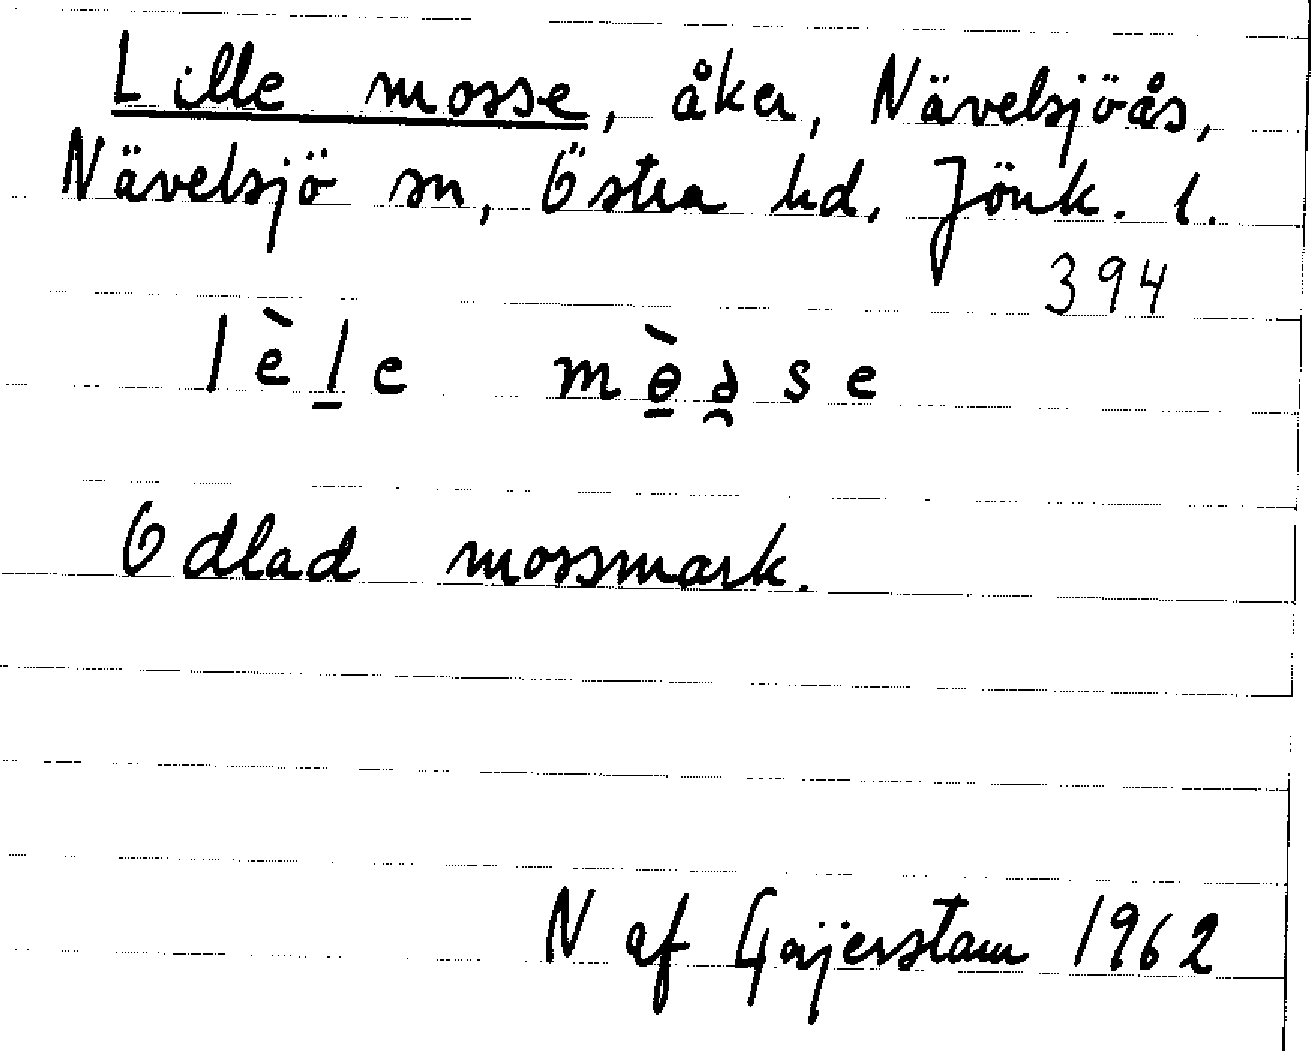 Lille mosse, åker, Nävelsjöås,
Nävelsjö sn, Östra hd, Jönk. l.
394
lèl̲e mɵ̲̀ə̯se
Odlad mossmark.
N af Geijerstam 1962